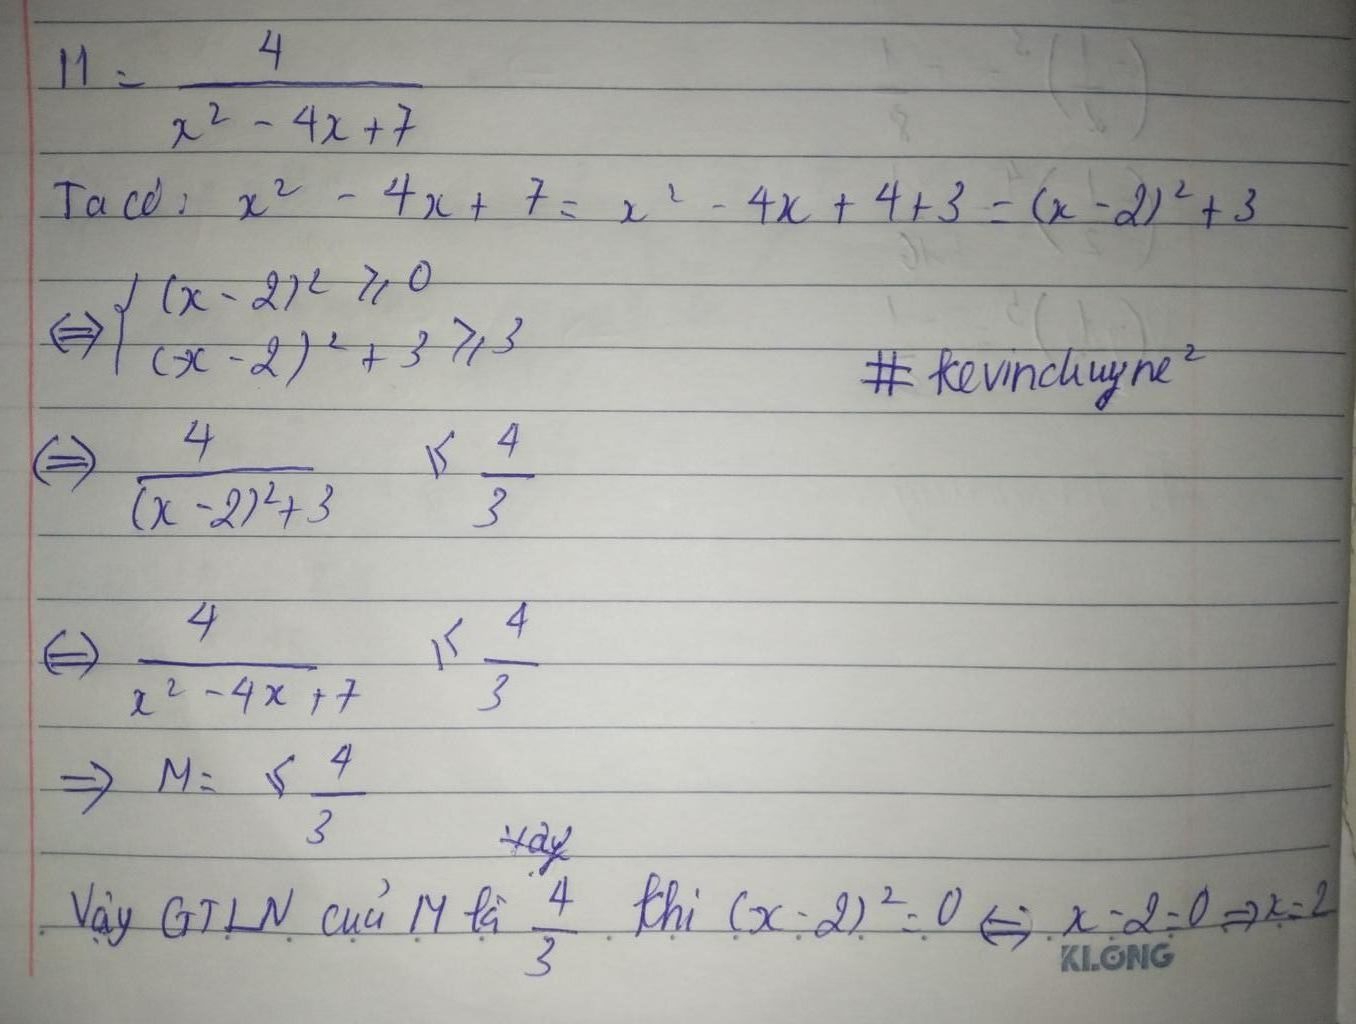 M = 4/(x² - 4x + 7)
Ta có: x² - 4x + 7 = x² - 4x + 4 + 3 = (x - 2)² + 3
⇔ { (x - 2)² ⩾ 0
(x - 2)² + 3 ⩾ 3
# kevinchuyne²
⇔ 4/((x - 2)² + 3) ⩽ 4/3
⇔ 4/(x² - 4x + 7) ⩽ 4/3
⇒ M = ⩽ 4/3
Vậy GTLN của M là 4/3 khi (x - 2)² = 0 ⇔ x - 2 = 0 ⇒ x = 2
KLONG